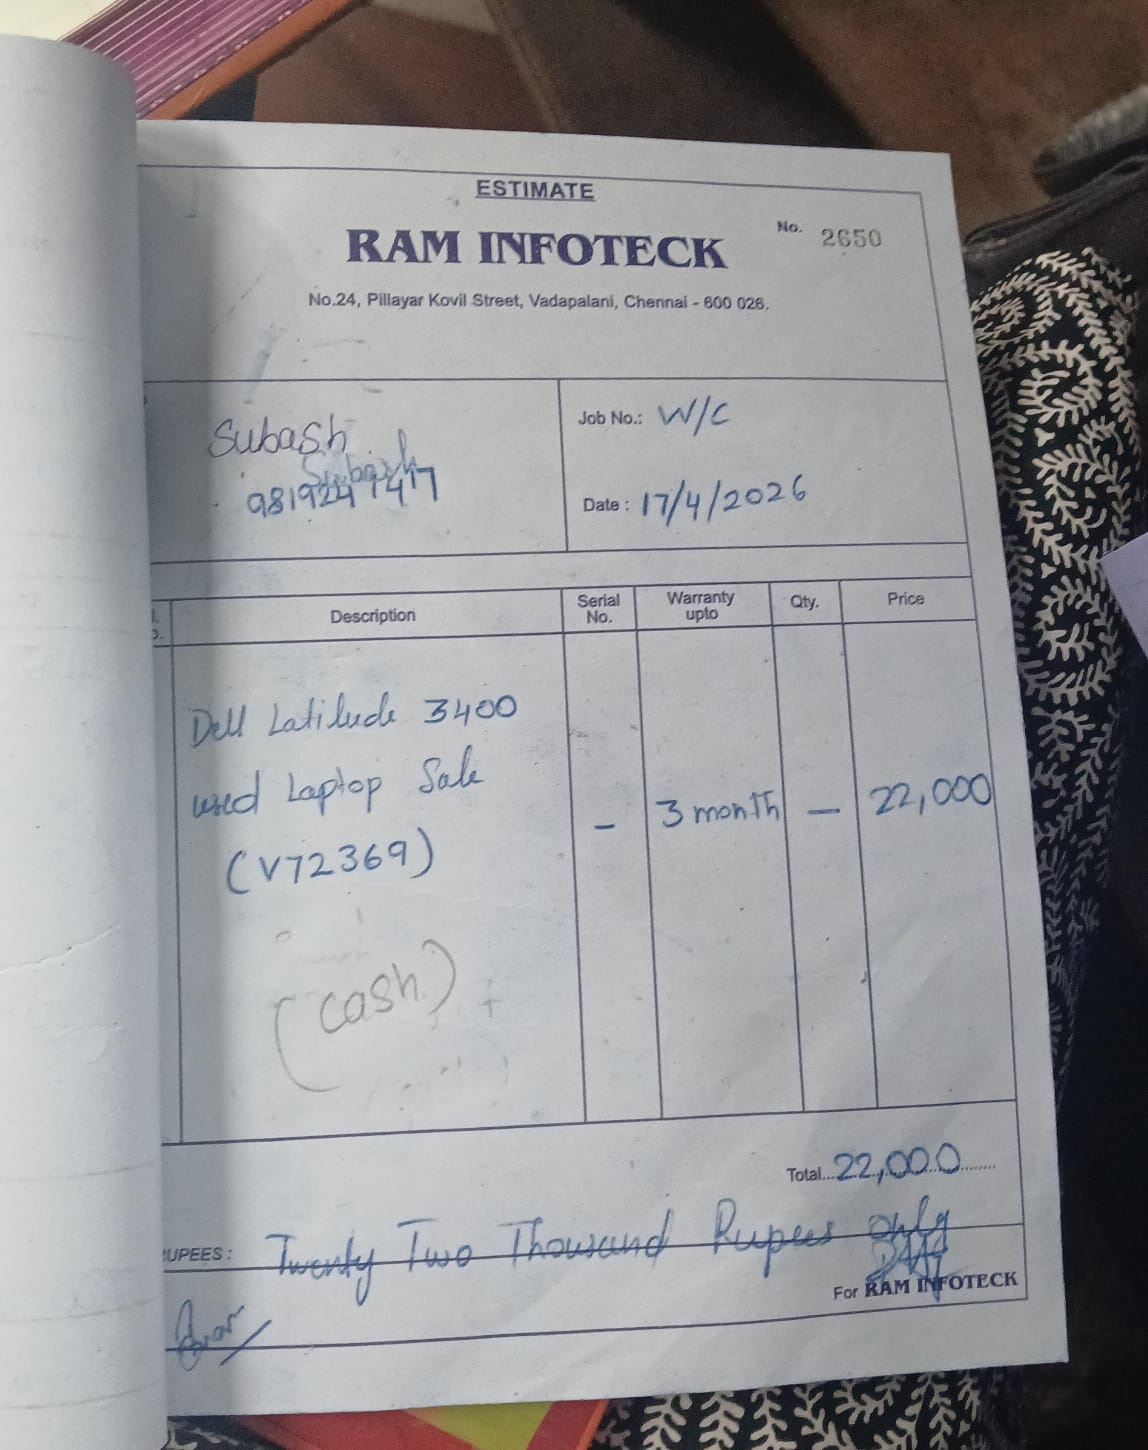 ESTIMATE
No. 2650
RAM INFOTECK
No.24, Pillayar Kovil Street, Vadapalani, Chennai - 600 026.
Subash
Subash
Job No.: W/C
Date : 17/4/2026
Description Serial No. Warranty upto Qty. Price
Dell Latitude 3400
used Laptop Sale
(V72369)
- 3 month - 22,000
(cash)
Total...22,000
RUPEES : Twenty Two Thousand Rupees Only
For RAM INFOTECK